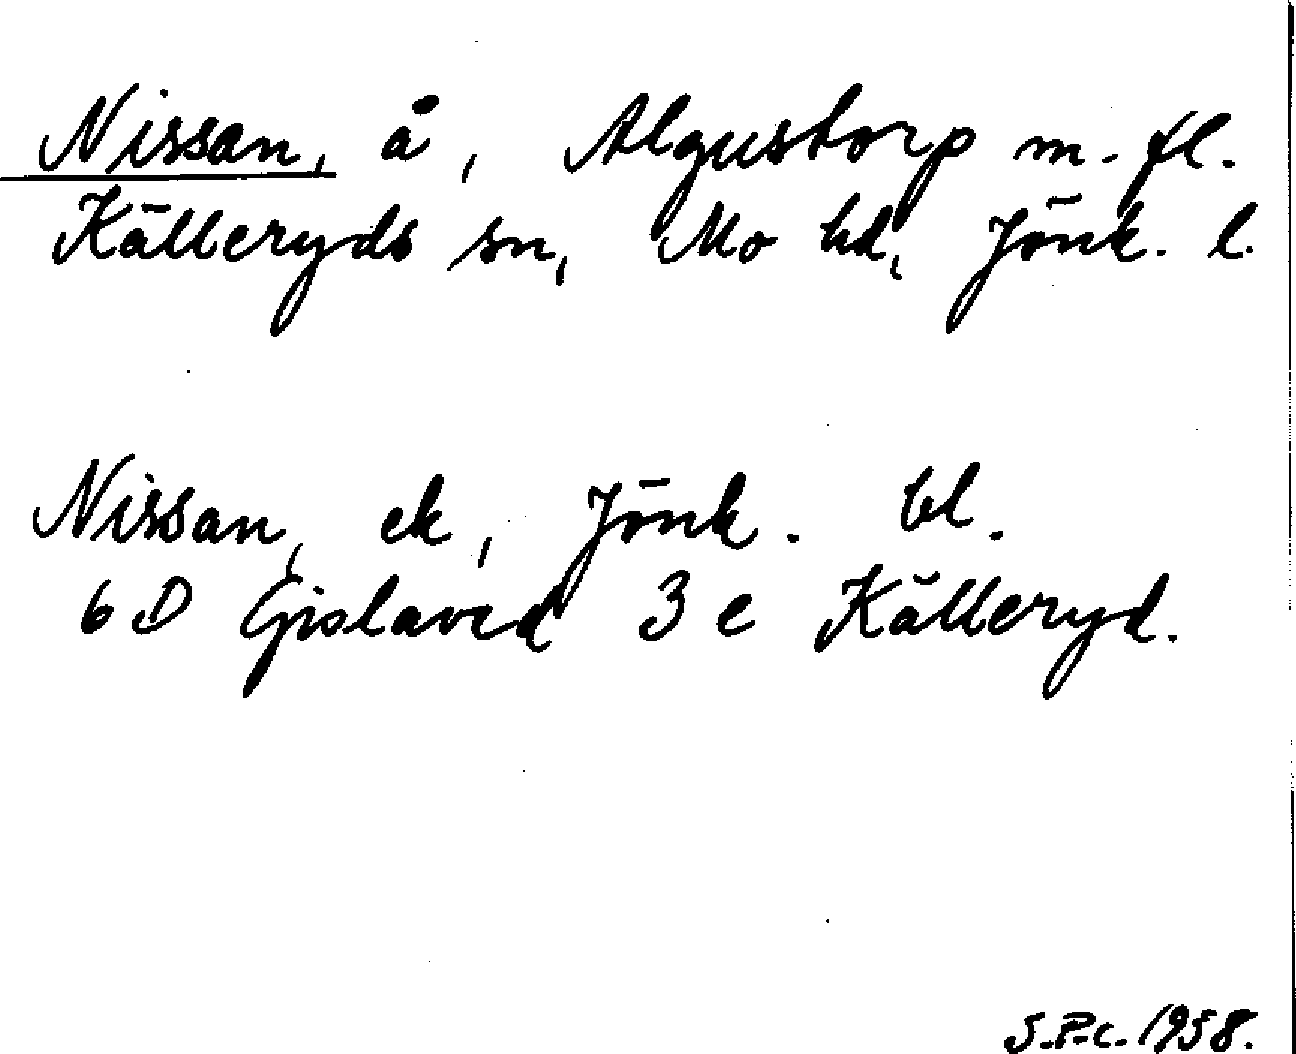 Nissan, å, Algustorp m. fl.
Källeryds sn, Mo hd, Jönk. l.
Nissan, ek, Jönk. bl.
6 D Gislaved 3 e Källeryd.
S.P-c. 1958.